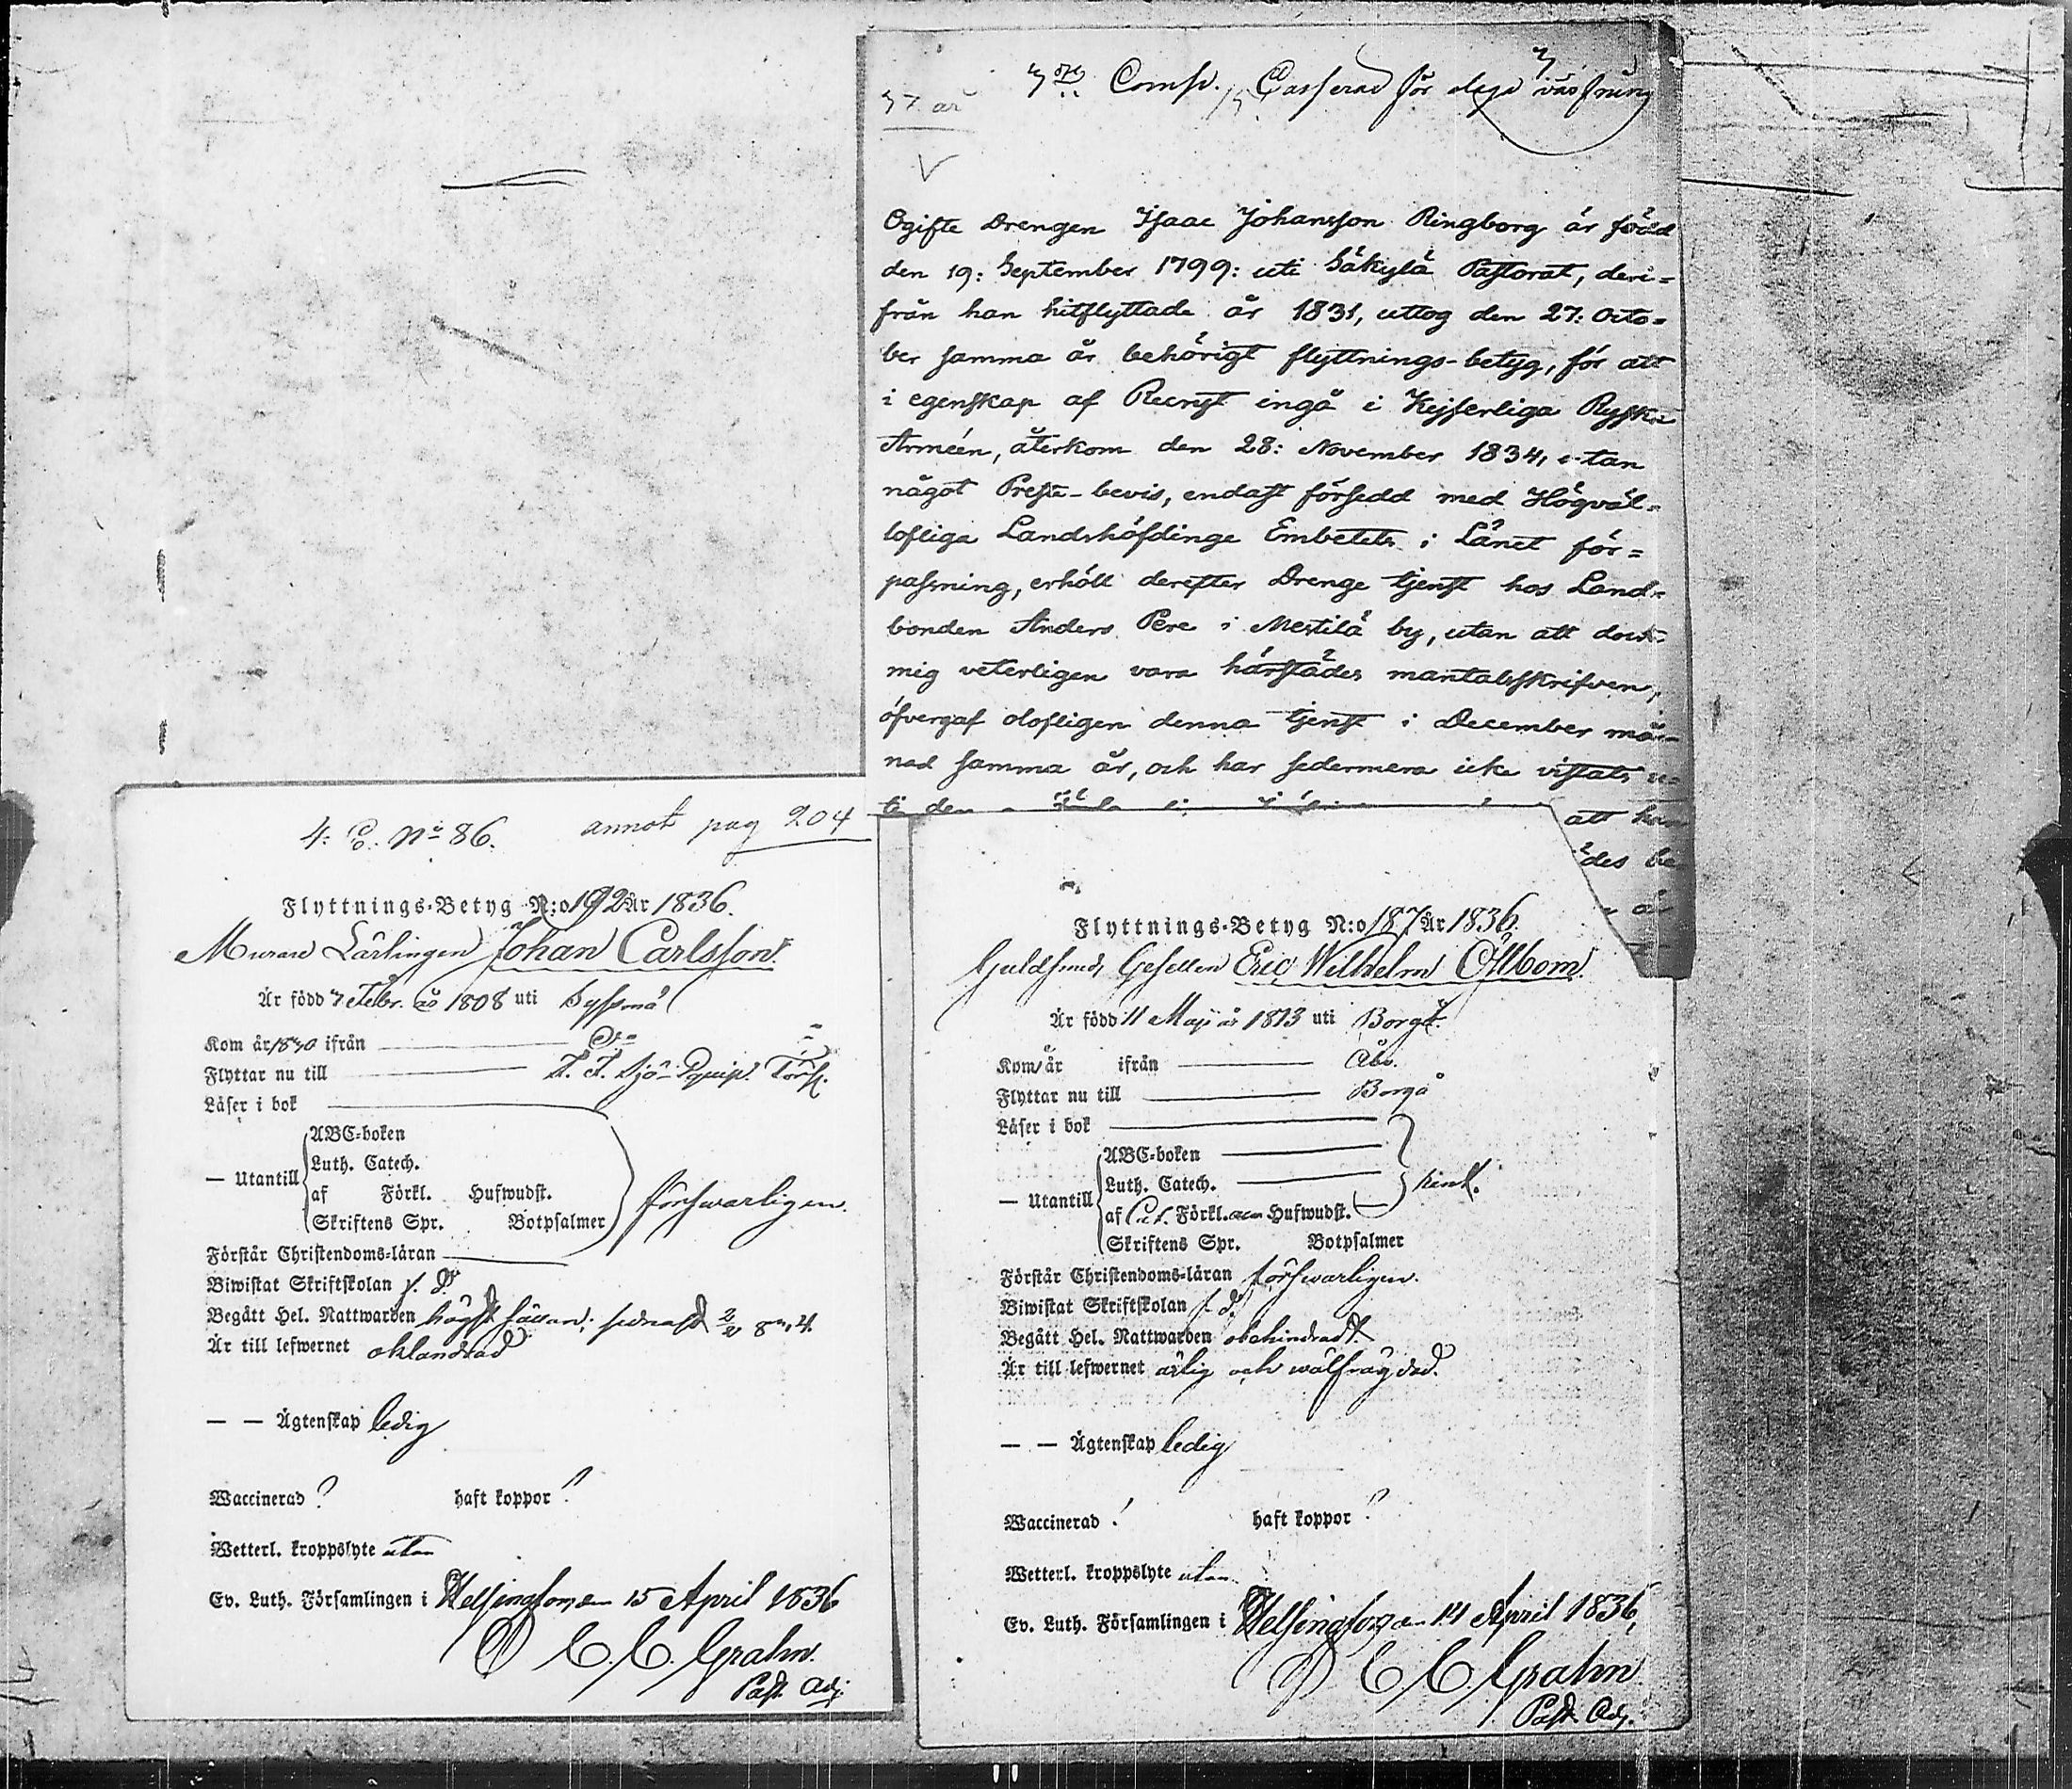 37 år
Comp. Casserad för
Ogifte Drengen Isaac Johansson Ringborg är född
den 19: September 1799: uti Säkylä Pastorat, deri=
från han hitflyttade år 1831, uttog den 27: Octo=
ber samma år behörigt flyttnings-betyg, för att
i egenskap af Recryt ingå i Kejserliga Ryska
Arméen, återkom den 28: November 1834, utan
något Prest-bevis, endast försedd med Högväl=
lofliga Landshöfdinge Embetets i Länet för=
passning, erhöll derefter Drenge tjenst hos Land=
bonden Anders Pere i Mestilä by, utan att dock
mig veterligen vara härstädes mantalsskrifven,
öfvergaf olofligen denna tjenst i December må=
nad samma år, och har sedermera icke vistats u=
ti den
att han
ädes be
år
4: C. No 86. annot pag 204
Flyttnings-Betyg N:o 192 År 1836.
Murare Lärlingen Johan Carlsson.
Är född 7 Febr. år 1808 uti Syssmä
Kom år 1830 ifrån Do
Flyttar nu till Sjö Equip. Förs.
Läser i bok
— Utantill
ABC-boken
Luth. Catech.
af Förkl. Hufwudst.
Skriftens Spr. Botpsalmer
försvarligen.
Förstår Christendoms-läran
Biwistat Skriftskolan f. d.
Begått Hel. Nattwarden högst sällan; sednast
Är till lefwernet oklandrad
— — Ägtenskap ledig
Waccinerad ? haft koppor ?
Wetterl. kroppslyte utan
Ev. Luth. Församlingen i Helsingfors den 15 April 1836
C. C. Grahn.
Past. Adj.
Flyttnings-Betyg N:o 187 År 1836.
Guldsmeds Gesellen Eric Wilhelm Öhbom.
Är född 11 Maji år 1813 uti Borgå.
Kom år ifrån Åbo.
Flyttar nu till Borgå
Läser i bok
— Utantill
ABC-boken
Luth. Catech.
af Förkl. Hufwudst.
Skriftens Spr. Botpsalmer
Förstår Christendoms-läran försvarligen.
Biwistat Skriftskolan f. d.
Begått Hel. Nattwarden obehindradt
Är till lefwernet ärlig och wälfrägdad.
— — Ägtenskap ledig
Waccinerad ? haft koppor ?
Wetterl. kroppslyte utan
Ev. Luth. Församlingen i Helsingfors den 14 April 1836,
C C Grahn
Past. Adj.